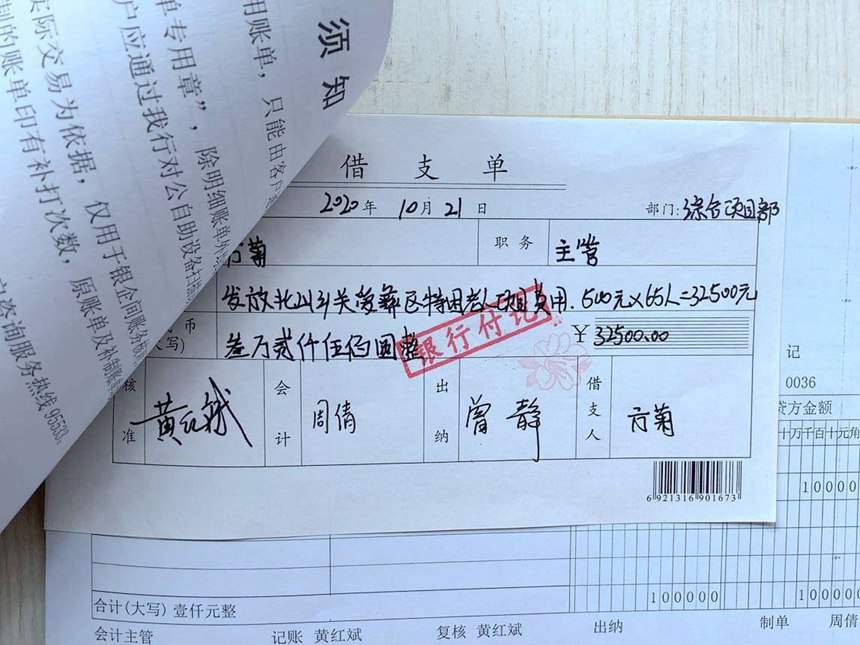 须知
用账单，只能由客户
单专用章”，除明细账单外
户应通过我行对公自助设备打
实际交易为依据，仅用于银企间账务核
制的账单印有补打次数，原账单及补制账单
咨询服务热线 95533
借支单
2020年 10月 21日 部门：综合项目部
方菊 职务 主管
发放北山乡关爱彝区特困老人项目费用.500元×65人=32500元
币
写) 叁万贰仟伍佰圆整 ¥ 32500.00
银行付讫
核准 黄红斌 会计 周倩 出纳 曾静 借支人 方菊
6 921316 901673
记
0036
贷方金额
十万千百十元角
10000
合计(大写) 壹仟元整 100000 10000
会计主管 记账 黄红斌 复核 黄红斌 出纳 制单 周倩